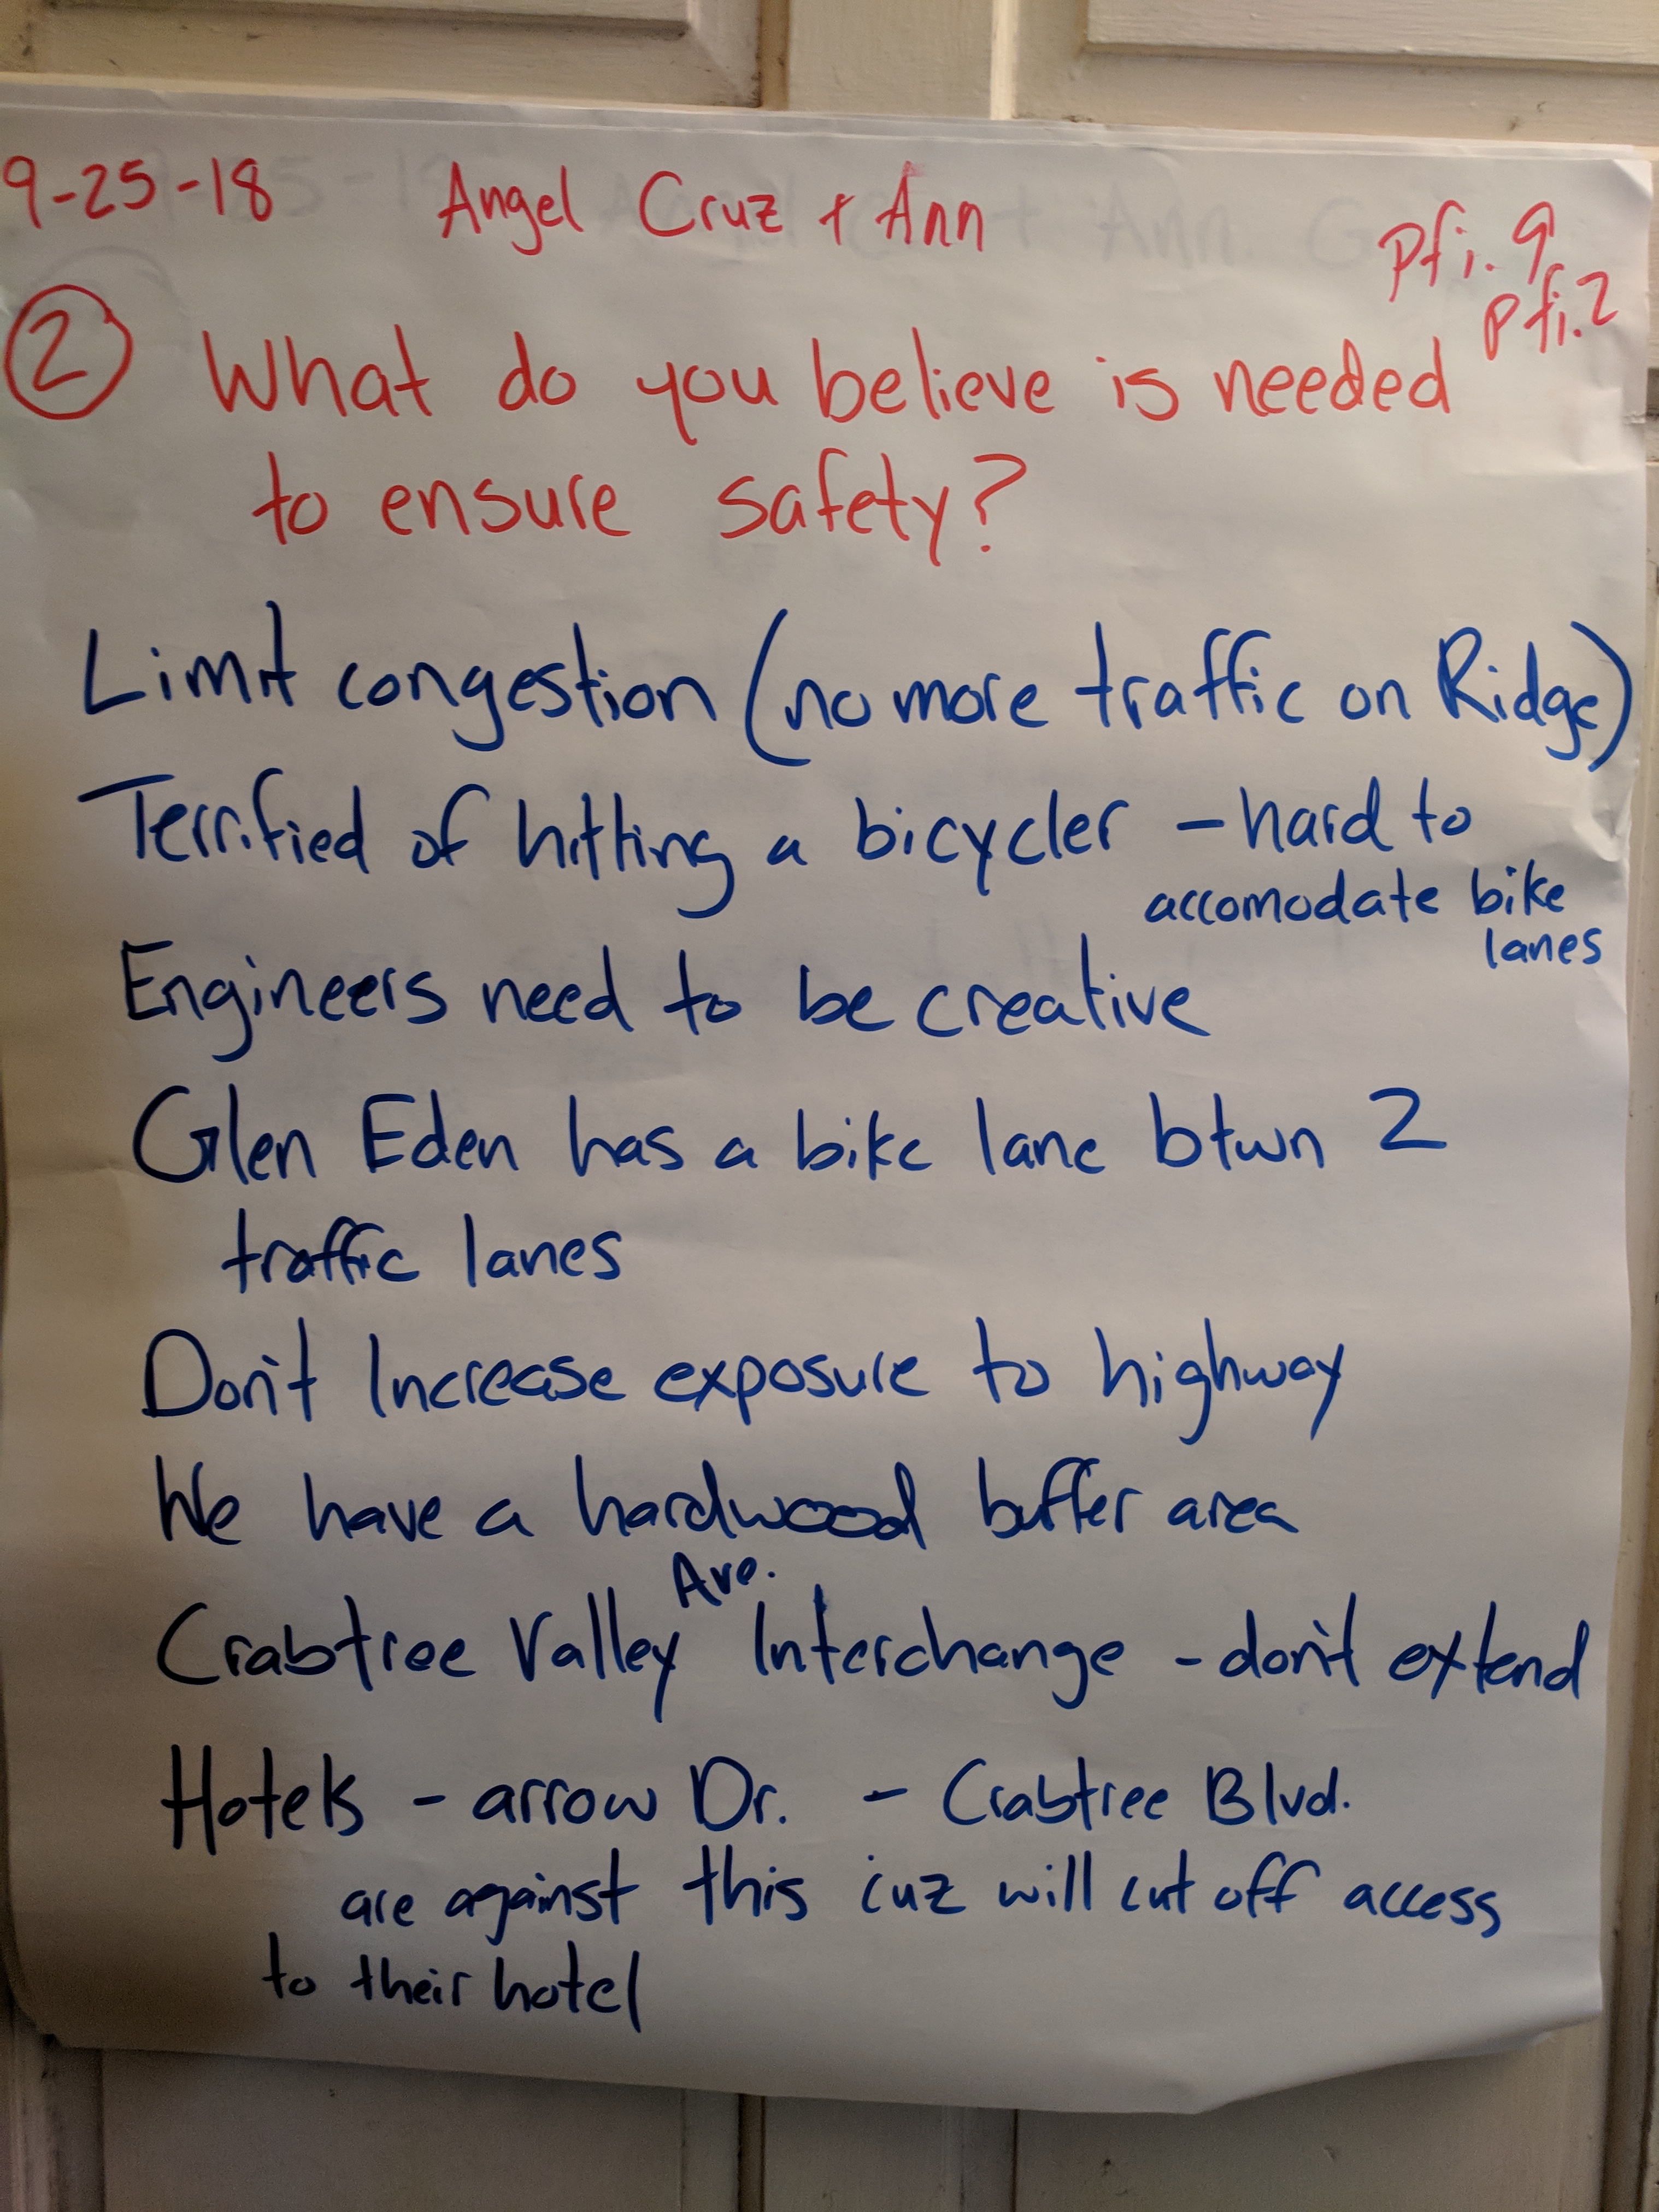 9-25-18 Angel Cruz + Ann
Pfi. 9
Pfi. 2
② What do you believe is needed
to ensure safety?
Limit congestion (no more traffic on Ridge)
Terrified of hitting a bicycler - hard to
accomodate bike
lanes
Engineers need to be creative
Glen Eden has a bike lane btwn 2
traffic lanes
Don't Increase exposure to highway
We have a hardwood buffer area
Crabtree Valley Ave. Interchange - don't extend
Hotels - arrow Dr. - Crabtree Blvd.
are against this cuz will cut off access
to their hotel